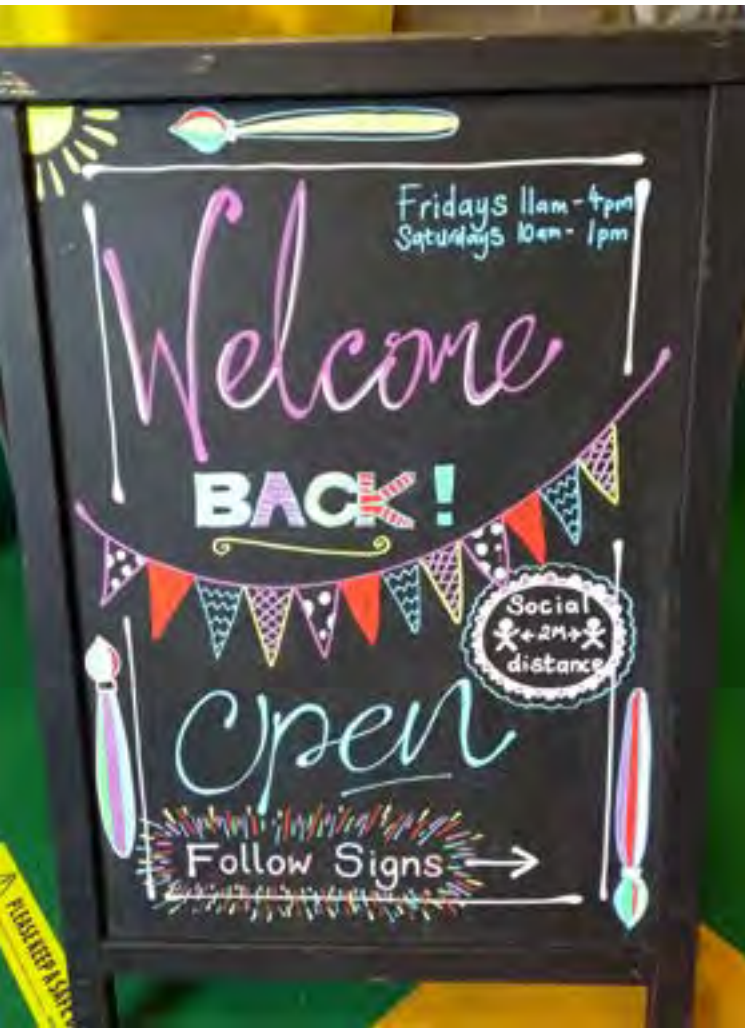 Fridays 11am - 4pm
Saturdays 10am - 1pm
Welcome
BACK!
Social
←2M→
distance
Open
Follow Signs →
PLEASE KEEP A SAFE